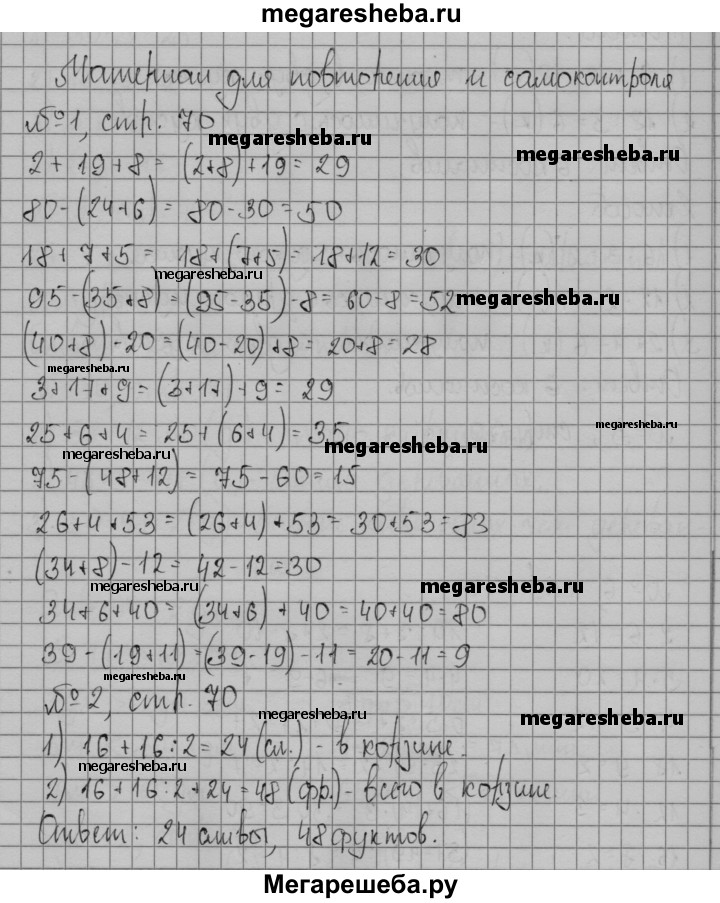 megaresheba.ru
Материал для повторения и самоконтроля
№1, стр. 70
megaresheba.ru
megaresheba.ru
2 + 19 + 8 = (2+8) + 19 = 29
80 - (24+6) = 80 - 30 = 50
18 + 7 + 5 = 18 + (7+5) = 18 + 12 = 30
megaresheba.ru
95 - (35+8) = (95-35) - 8 = 60 - 8 = 52
megaresheba.ru
(40+8) - 20 = (40-20) + 8 = 20+8 = 28
megaresheba.ru
3 + 17 + 9 = (3+17) + 9 = 29
megaresheba.ru
25 + 6 + 4 = 25 + (6+4) = 35
megaresheba.ru
megaresheba.ru
75 - (48+12) = 75 - 60 = 15
26 + 4 + 53 = (26+4) + 53 = 30 + 53 = 83
(34+8) - 12 = 42 - 12 = 30
megaresheba.ru
megaresheba.ru
34 + 6 + 40 = (34+6) + 40 = 40 + 40 = 80
39 - (19+11) = (39-19) - 11 = 20 - 11 = 9
megaresheba.ru
№ 2, стр. 70
megaresheba.ru
megaresheba.ru
1) 16 + 16 : 2 = 24 (сл.) - в корзине.
megaresheba.ru
2) 16 + 16 : 2 + 24 = 48 (фр.) - всего в корзине.
Ответ: 24 сливы, 48 фруктов.
Мегарешеба.ру